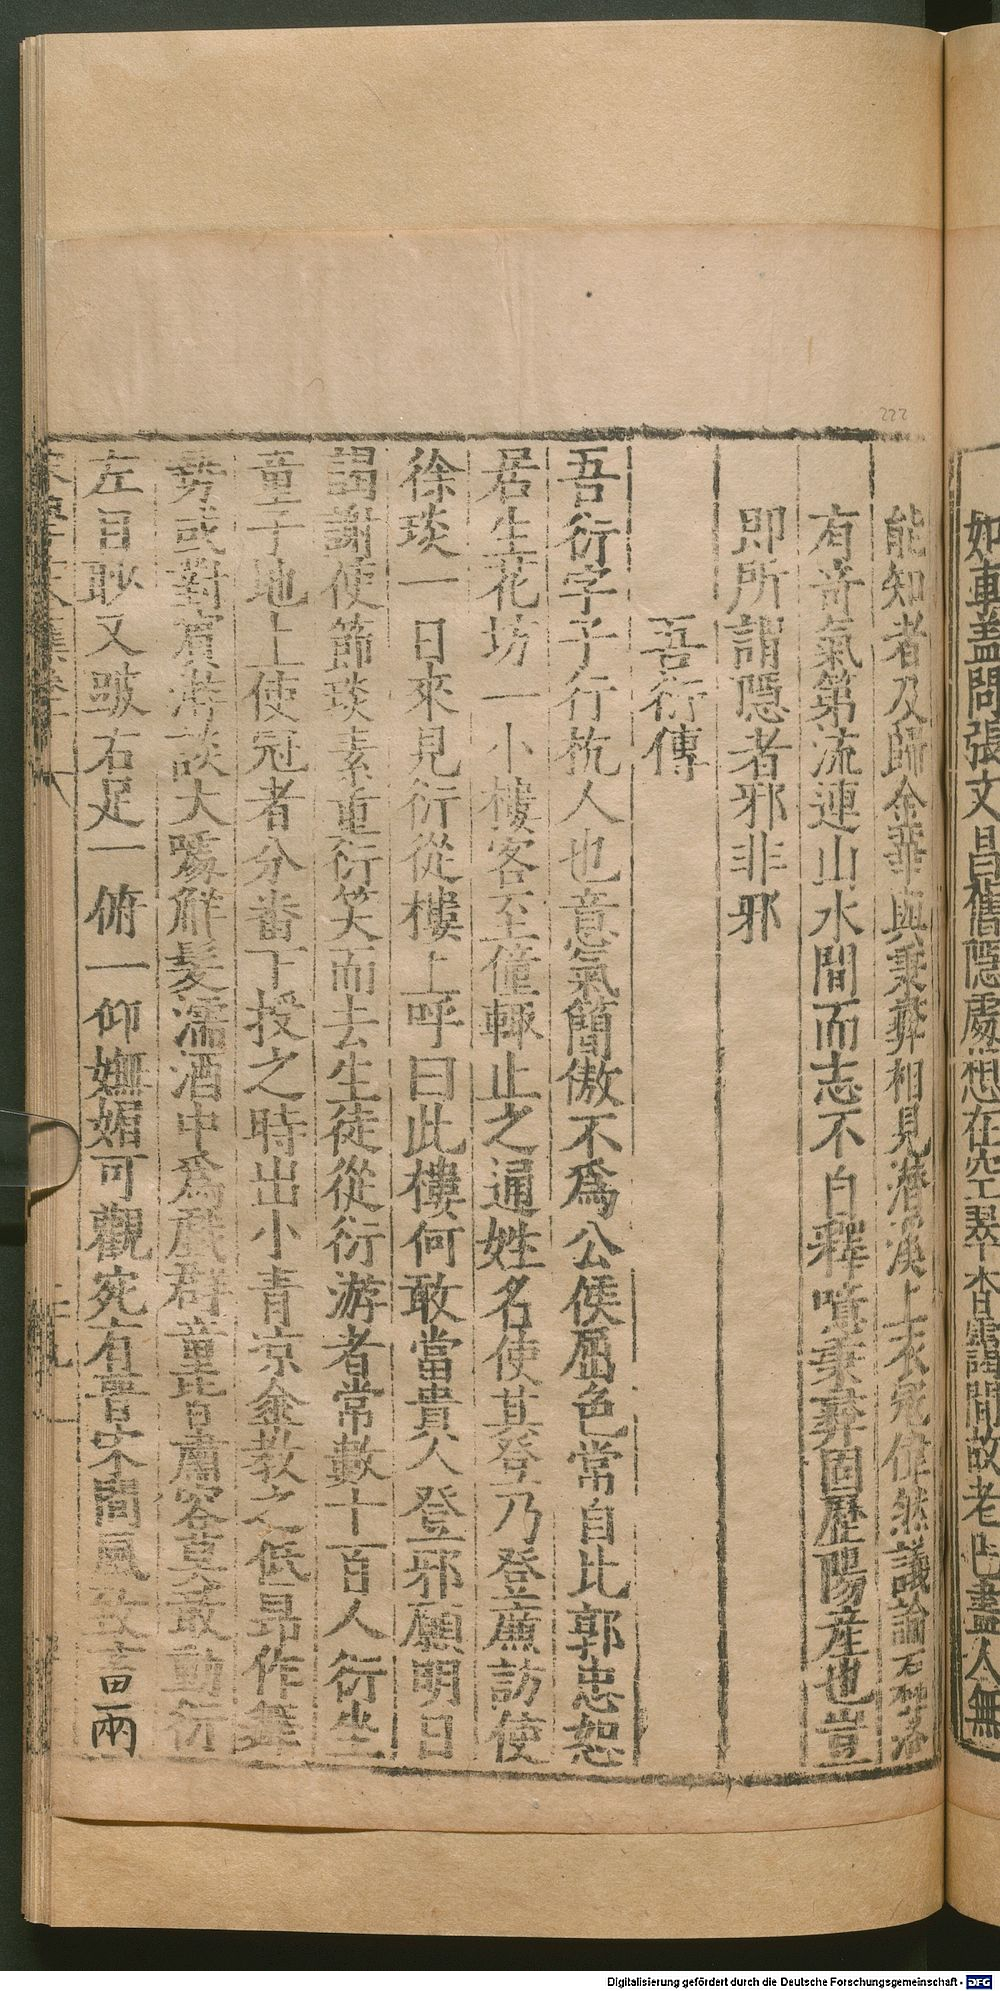 如車蓋問張文昌舊隱處想在空翠杳靄間故老已盡人無
能知者及歸金華與秉彝相見潛溪上衣冠偉然議論石
有竒氣第流連山水間而志不白釋噫秉彝固歷陽産也豈
即所謂隱者邪非邪
吾衍傳
吾衍字子行杭人也意氣簡傲不為公侯屈色常自比郭忠恕
居生花坊一小樓客至僮輒止之通姓名使其登乃登廉訪使
徐琰一日來見衍從樓上呼曰此樓何敢當貴人登邪願明日
謁謝使節琰素重衍笑而去生徒從衍游者常數十百人衍坐
童子地上使冠者分畨下授之時出小青凉傘教之低昂作舞
勢或對賔㳺談大噱解髮濡酒中為戲群童皆肅容莫敢動衍
左目眇又跛右足一俯一仰嫵媚可觀宛有晋宋間風致畜兩
222
Digitalisierung gefördert durch die Deutsche Forschungsgemeinschaft - DFG